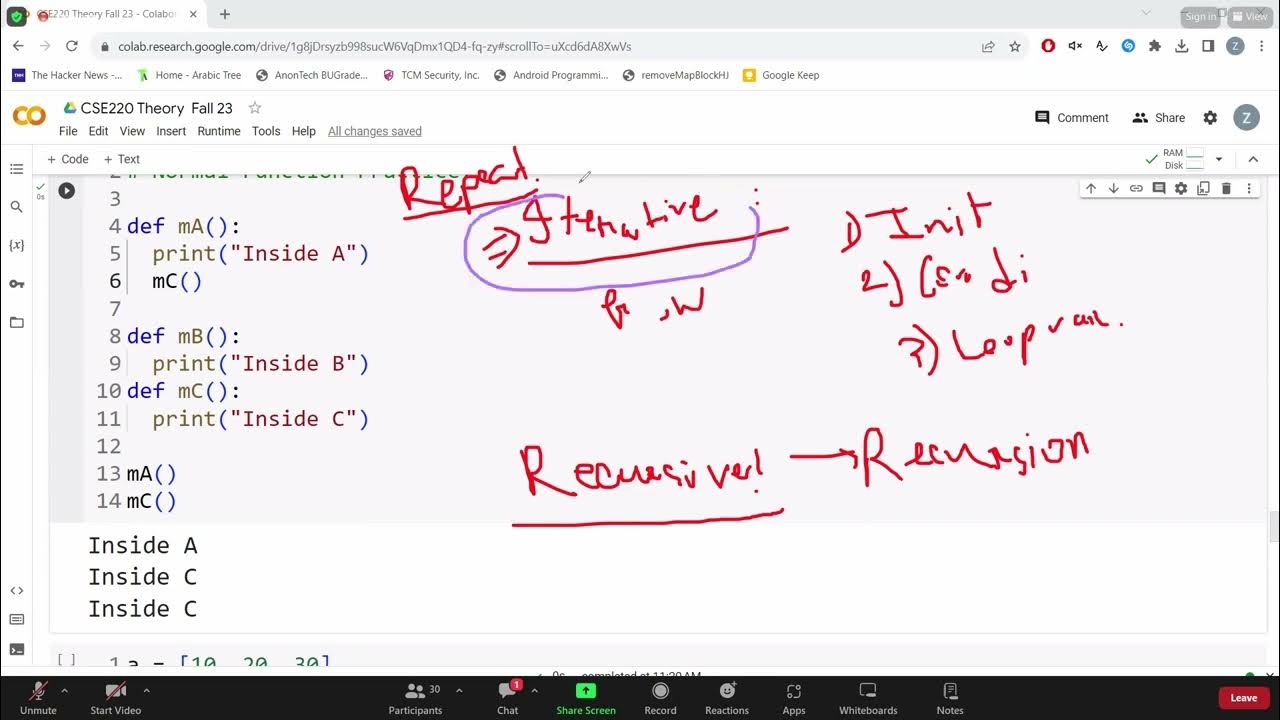 CSE220 Theory Fall 23 - Colabor
Sign in
View
colab.research.google.com/drive/1g8jDrsyzb998sucW6VqDmx1QD4-fq-zy#scrollTo=uXcd6dA8XwVs
Z
The Hacker News -...
Home - Arabic Tree
AnonTech BUGrade...
TCM Security, Inc.
Android Programmi...
removeMapBlockHJ
Google Keep
CSE220 Theory Fall 23
Comment
Share
Z
File Edit View Insert Runtime Tools Help All changes saved
+ Code + Text
RAM
Disk
2 # Normal Function Practice
0s
3
4 def mA():
5 print("Inside A")
6 mC()
7
8 def mB():
9 print("Inside B")
10 def mC():
11 print("Inside C")
12
13 mA()
14 mC()
Repeat.
⇒ Iterative :
1) Init
2)
3) Loop
, W
Recursive! → Recursion
Inside A
Inside C
Inside C
[ ] 1 a = [10, 20, 30]
0s completed at 11:20 AM
Unmute
Start Video
30
Participants
1
Chat
Share Screen
Record
Reactions
Apps
Whiteboards
Notes
Leave